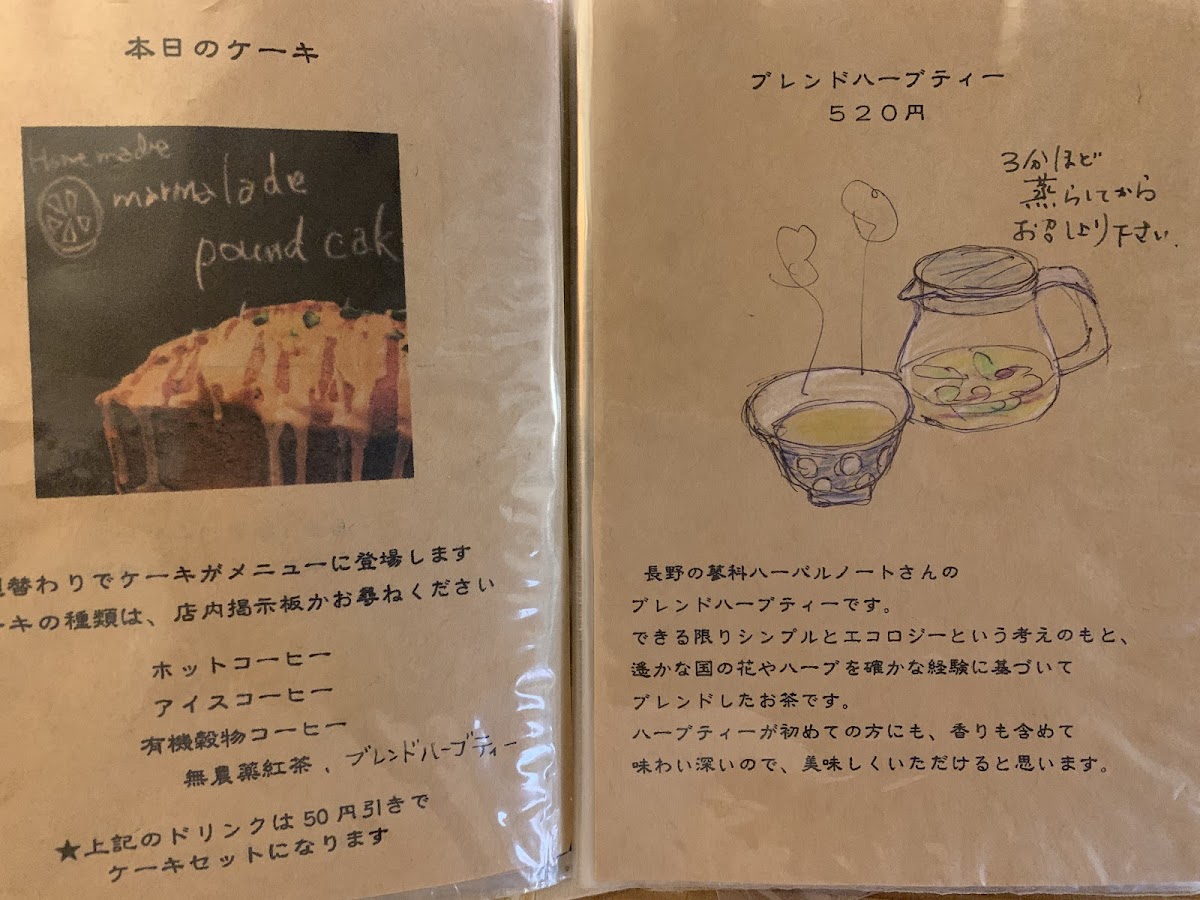 本日のケーキ
Home made
marmalade
pound cak
替わりでケーキがメニューに登場します
ーキの種類は、店内掲示板かお尋ねください
ホットコーヒー
アイスコーヒー
有機穀物コーヒー
無農薬紅茶、ブレンドハーブティー
★上記のドリンクは50円引きで
ケーキセットになります
ブレンドハーブティー
520円
3分ほど
蒸らしてから
お召し上り下さい.
長野の蓼科ハーバルノートさんの
ブレンドハーブティーです。
できる限りシンプルとエコロジーという考えのもと、
遥かな国の花やハーブを確かな経験に基づいて
ブレンドしたお茶です。
ハーブティーが初めての方にも、香りも含めて
味わい深いので、美味しくいただけると思います。